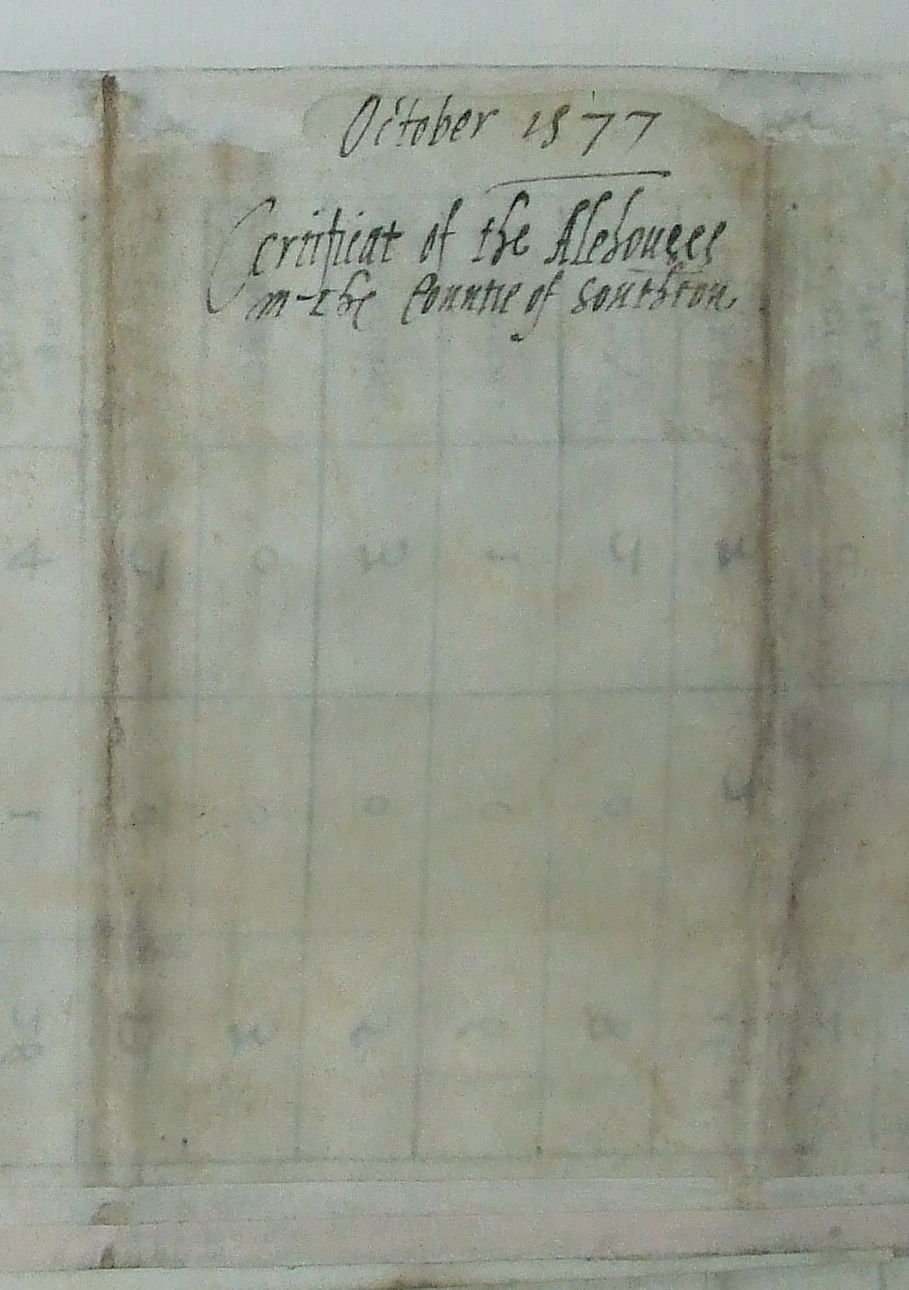 October 1577
Certificat of the Alehouses
in the Countie of Southton.